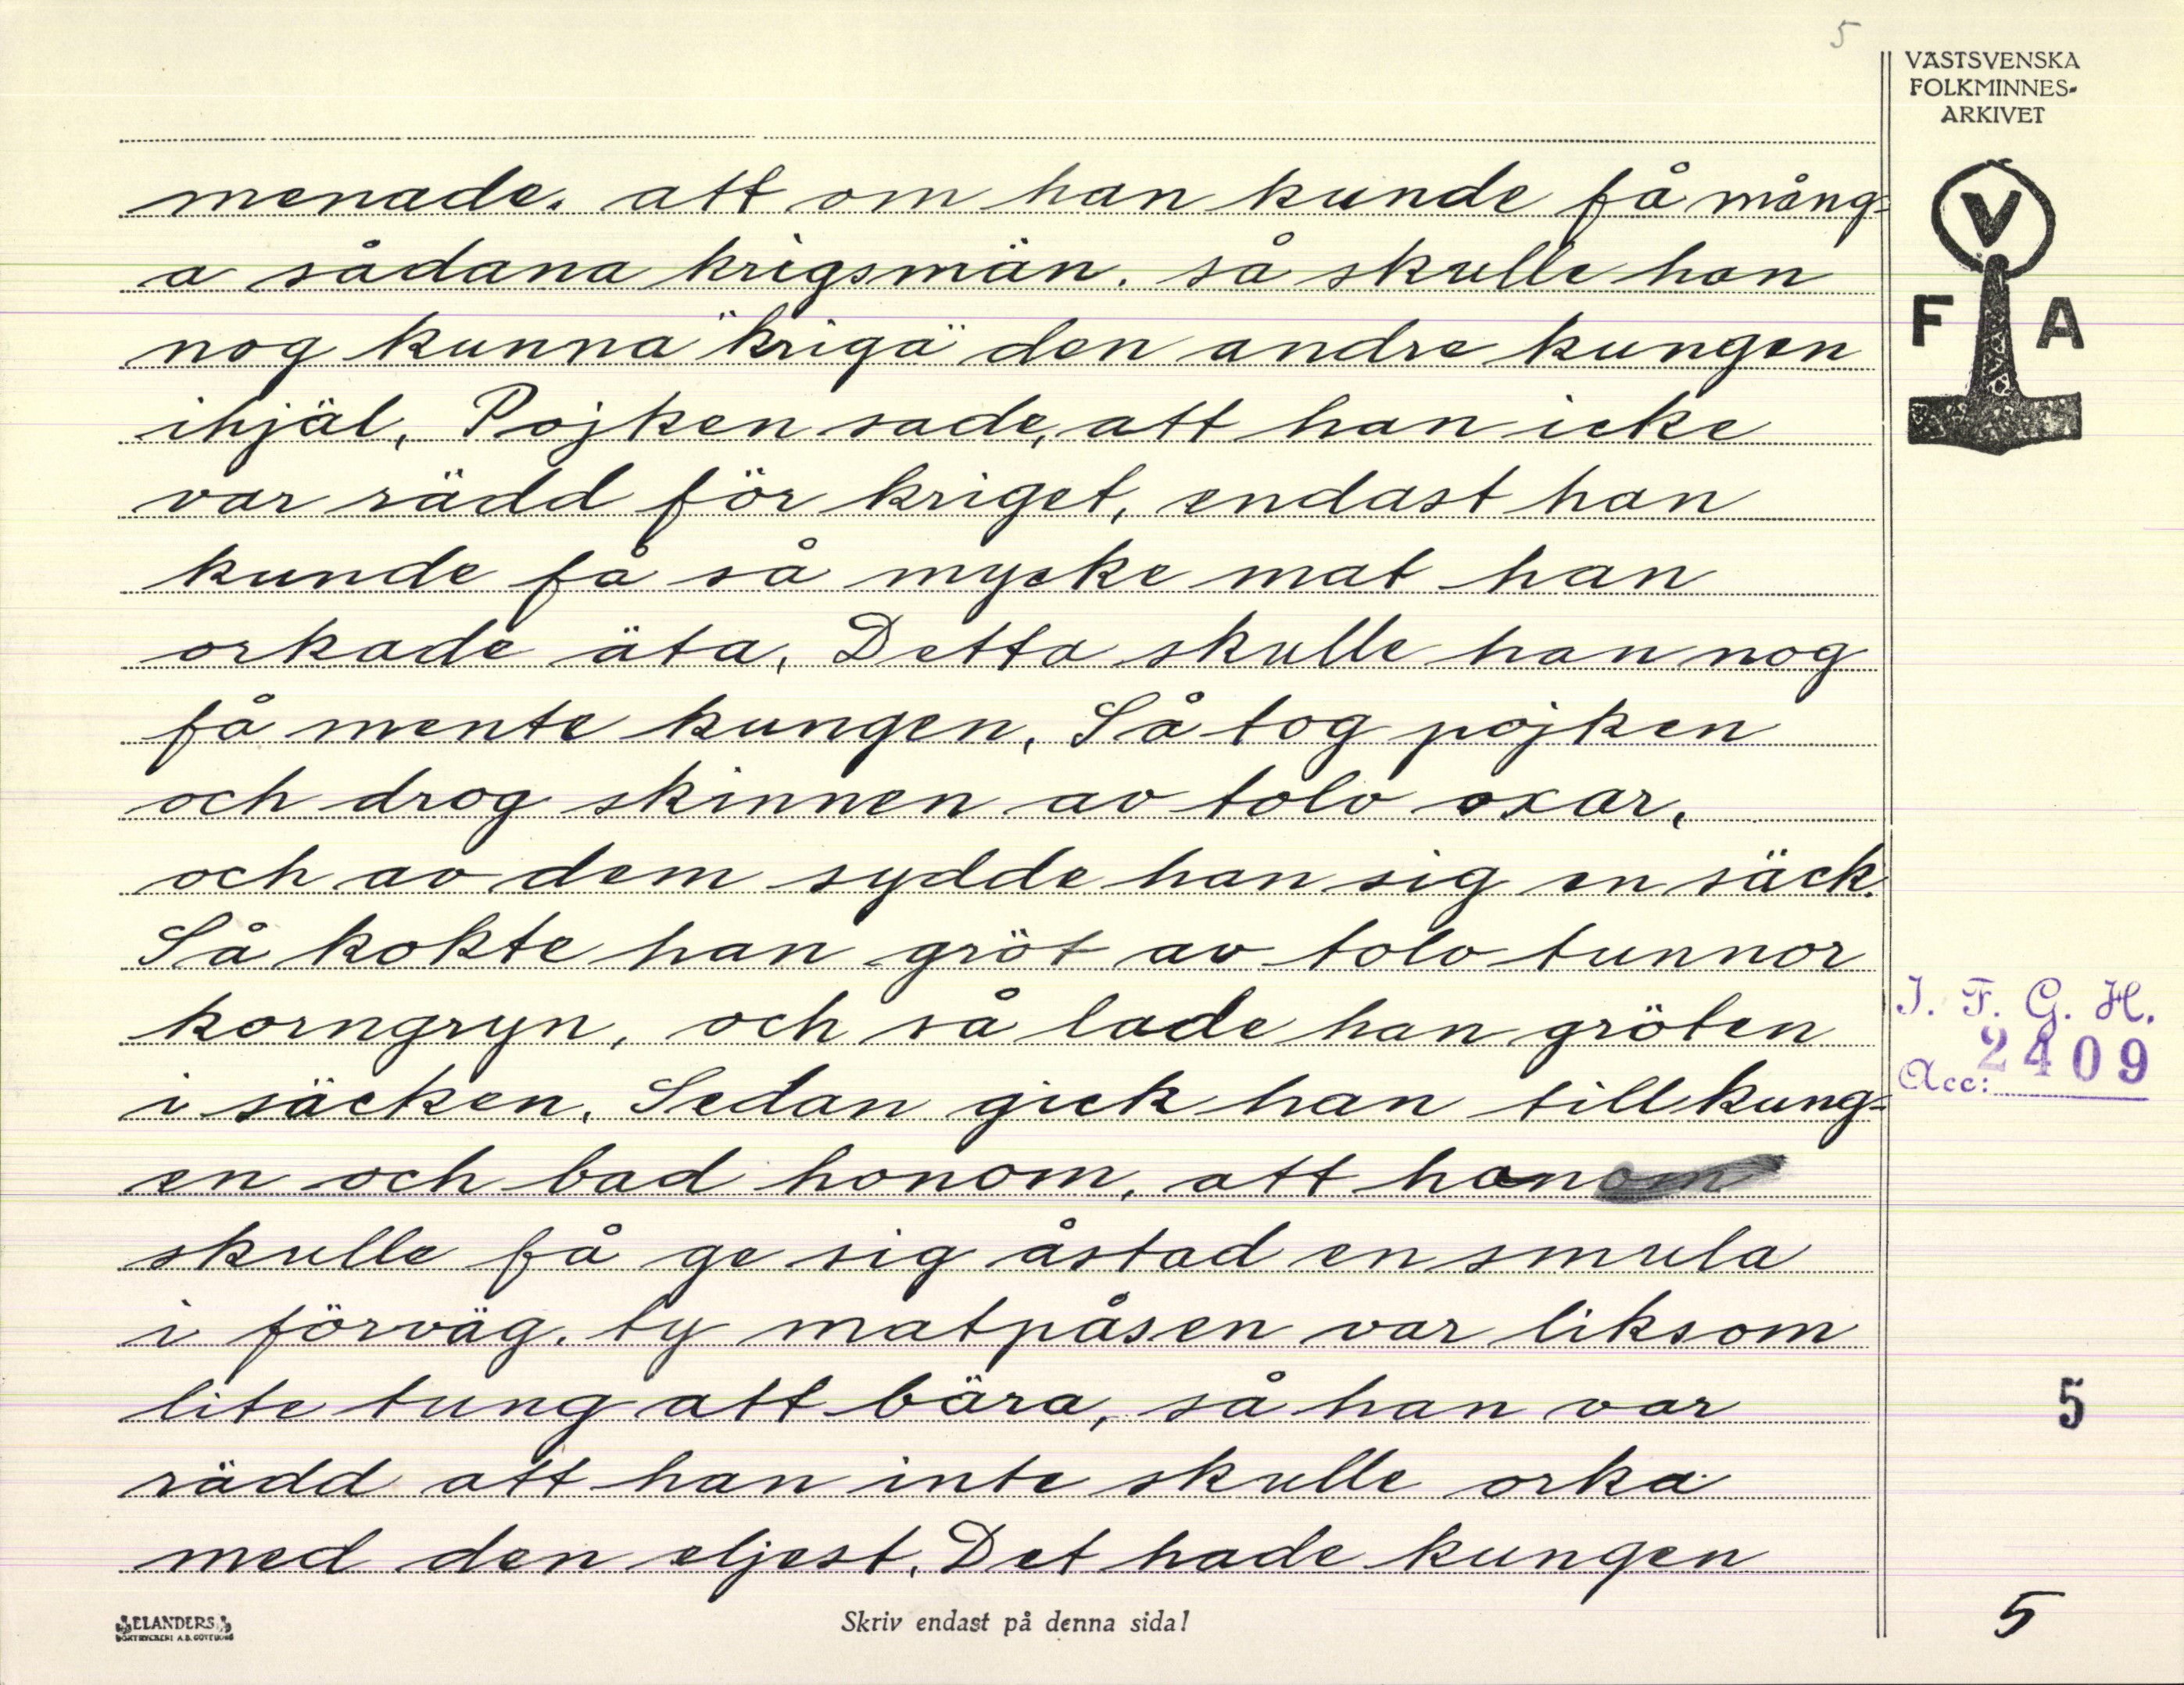 5
VÄSTSVENSKA
FOLKMINNES-
ARKIVET
V
F A
menade. att om han kunde få mång-
a sådana krigsmän. så skulle han
nog kunna "kriga" den andre kungen
ihjäl. Pojken sade, att han icke
var rädd för kriget, endast han
kunde få så mycke mat han
orkade äta. Detta skulle han nog
få mente kungen. Så tog pojken
och drog skinnen av tolv oxar,
och av dem sydde han sig en säck.
Så kokte han gröt av tolv tunnor
korngryn, och så lade han gröten
i säcken. Sedan gick han till kung-
en och bad honom, att han
skulle få ge sig åstad en smula
i förväg. ty matpåsen var liksom
lite tung att bära, så han var
rädd att han inte skulle orka
med den eljest. Det hade kungen
I. F. G. H.
Acc: 2409
5
5
ELANDERS
BOKTRYCKERI A.B. GÖTEBORG
Skriv endast på denna sida!